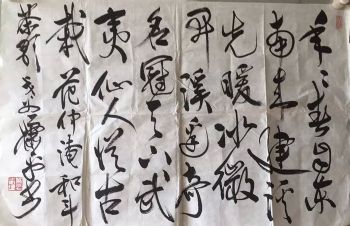 年々春自东
南来建溪
先暖冰微
开溪边奇
茗冠天下武
夷仙人從古
栽 范仲淹 和斗
茶歌 书